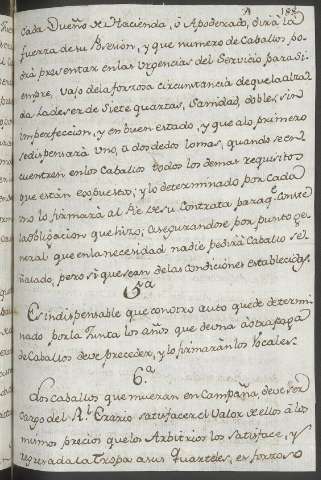 188
Cada Dueño de Hacienda, ò Apoderado, dirá la
fuerza de su Brevion, y que numero de Caballos po
drá presentar en las Urgencias del Servicio para si
empre, vajo de la forzosa circunstancia de que la alza
da, ha de ser de Siete quartas, Sanidad, dobles, sin
imperfeccion, y en buen estado, y que alo primero
se dispensará uno, ô dos dedos lomas, quando se en
cuentren en los Caballos todos los demas requisitos
que están expuestos; y lo determinado por Cada
no lo firmará al Pie de su Contrata para qe. Conste
la obligacion que hizo; asegurandose por punto ge
neral que en la necesidad nadie pedirá Caballo se
ñalado, pero si que sean de las condiciones establecidas.
5.a
Es indispensable que con otro auto quede determi
nado por la Junta los años que de una â otra paga
de Caballos deve preceder, y lo firmarán los Vocales.
6.a
Los Caballos que mueran en Campaña, deve ser
cargo del Rl. Erario satisfacer el Valor de ellos â los
mismos precios que los Arbitrios los satisface, y
regresada la Tropa a sus Quarteles, es forzoso